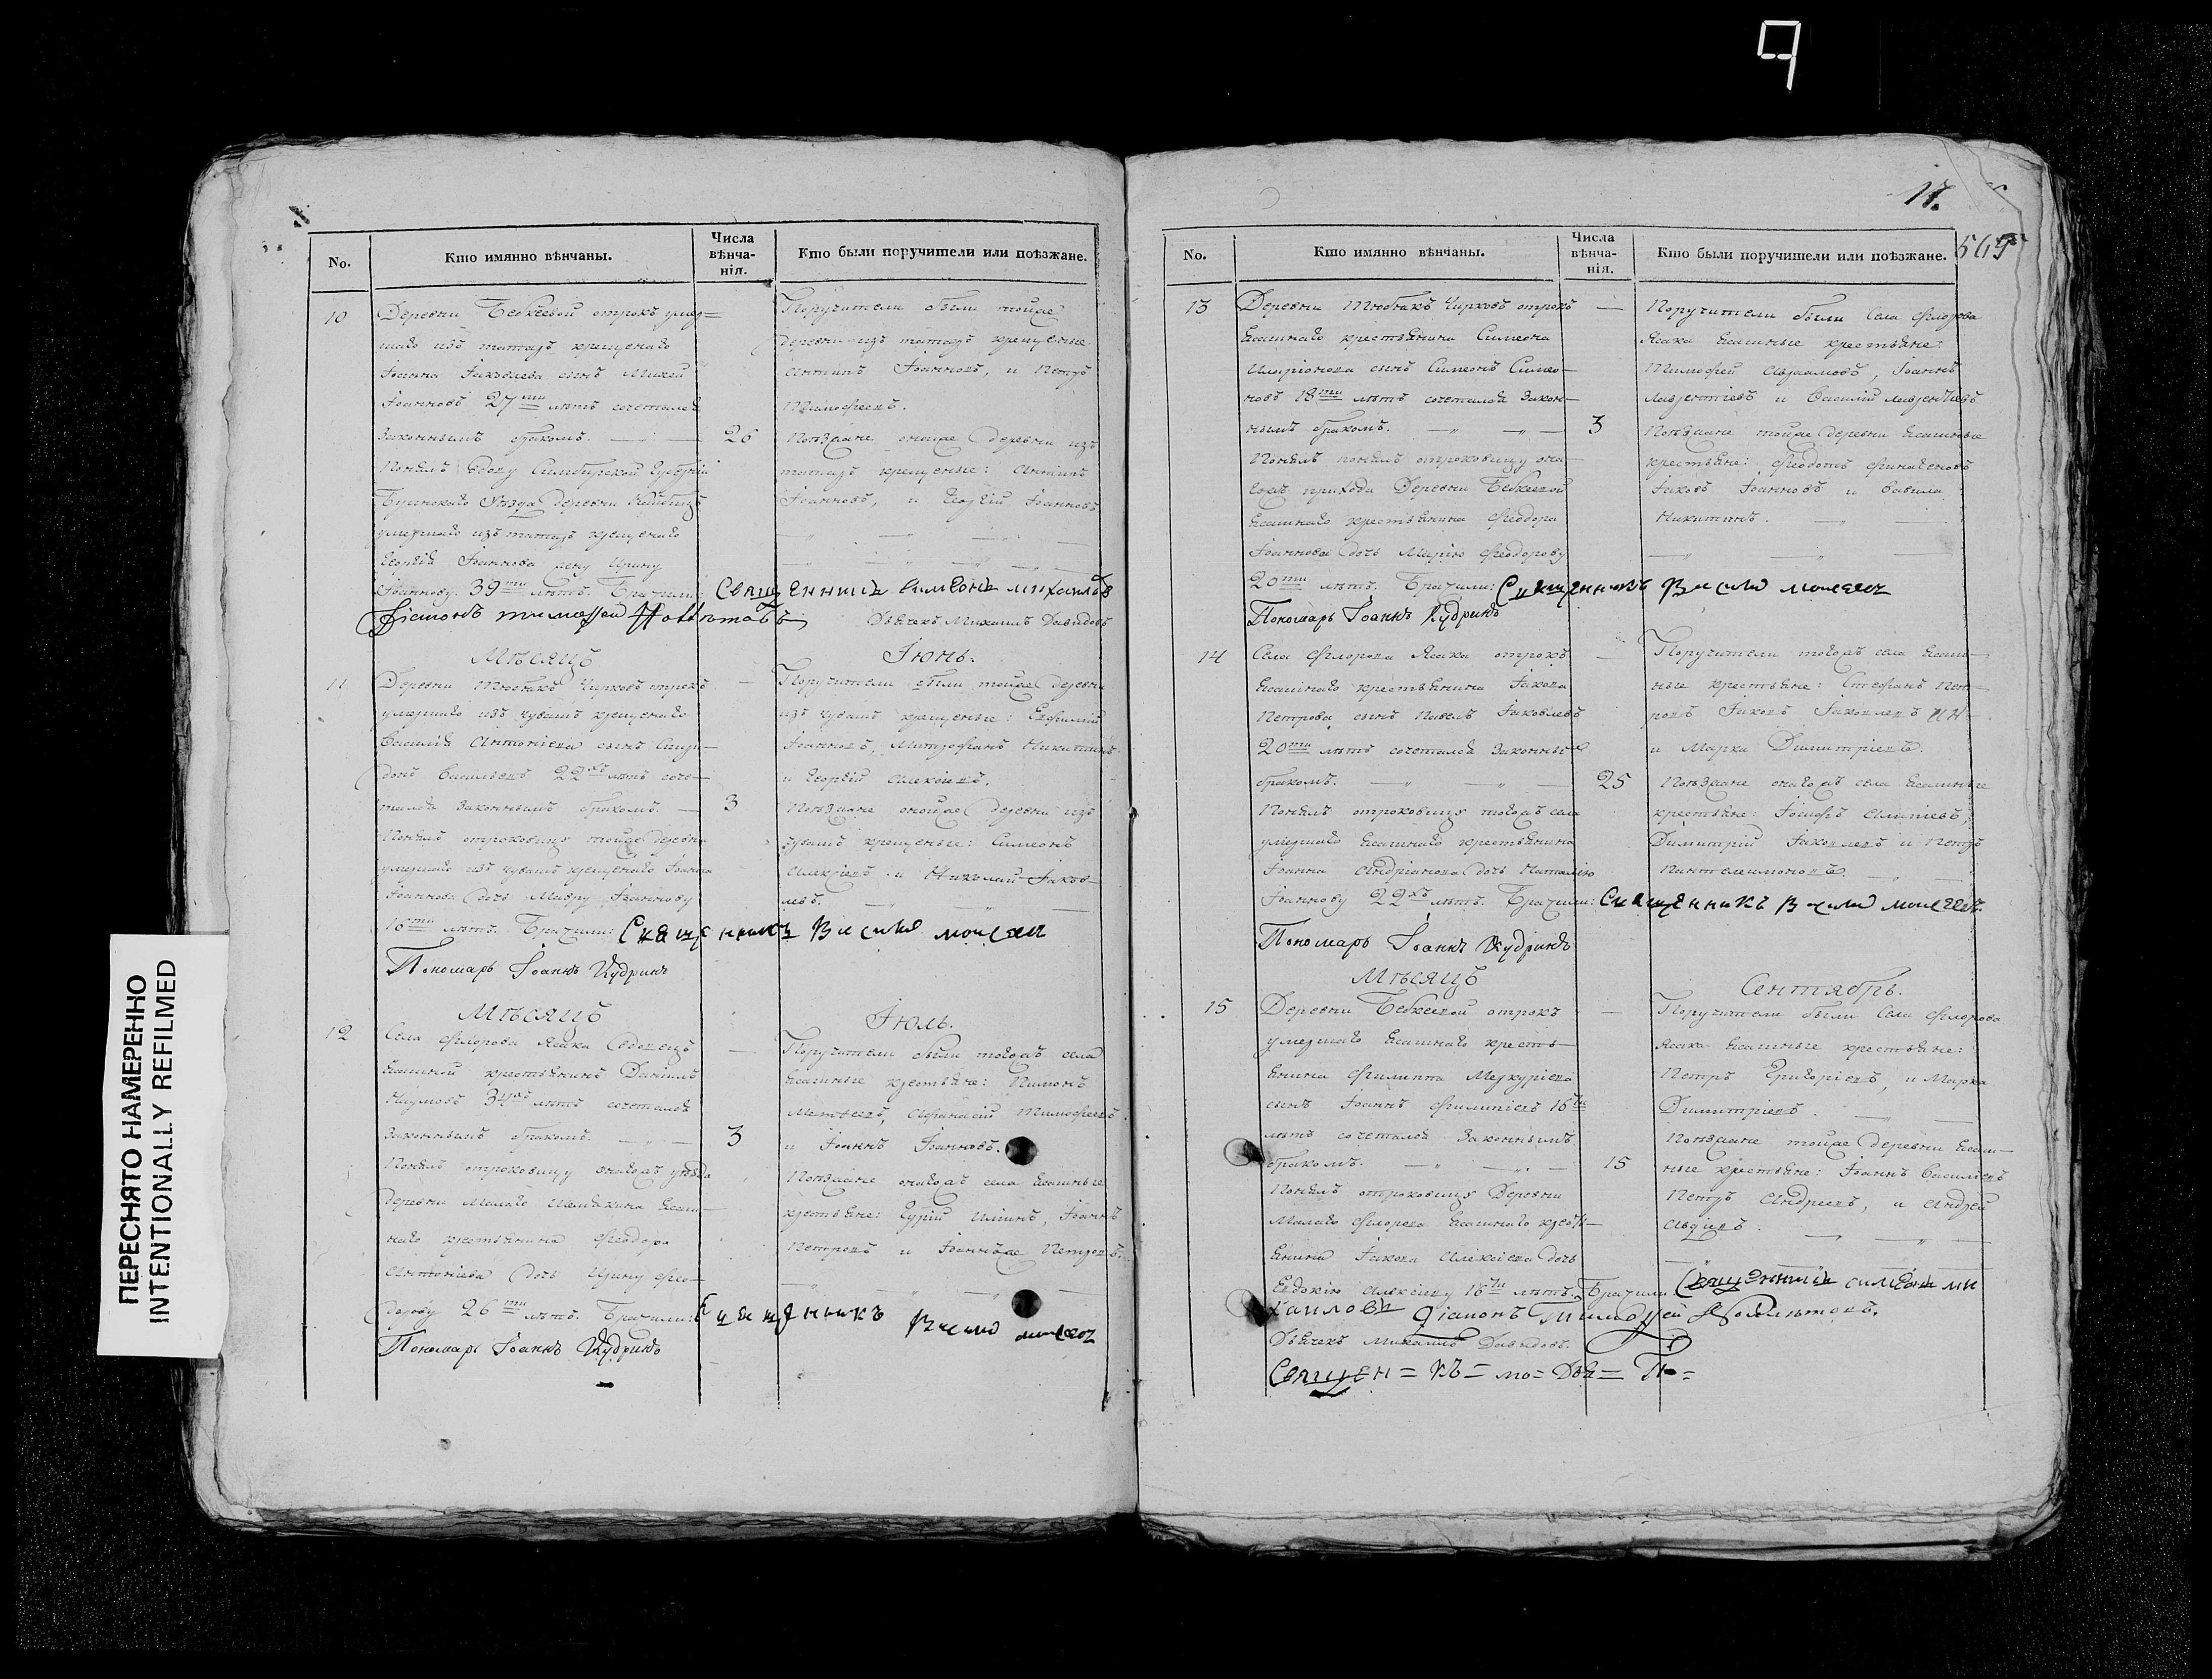 9
17.
569
No.
Кто имянно вѣнчаны.
Числа вѣнча-нія.
Кто были поручители или поѣзжане.
10
Деревни Бебкеевой отрокъ умер=
шаго изъ татаръ крещенаго
Іоанна Іаковлева сынъ Михей
Іоанновъ 27ми лѣтъ сочетался
законнымъ бракомъ. — 26
Понялъ вдову Симбирской Губерніи
Буинскаго Уѣзда деревни
умершаго изъ татаръ крещенаго
Георгія Іоаннова жену Ирину
Іоаннову 39ти лѣтъ. Брачили: Священникъ Симеонъ Михайловъ
Діаконъ Тимофей Дьячекъ Михаилъ Давыдовъ
Поручители были тойже
деревни изъ татаръ крещеные
Антипъ Іоанновъ, и Петръ
Тимофеевъ.
Поѣзжане оноиже деревни изъ
татаръ крещеные: Антипъ
Іоанновъ, и Георгій Іоанновъ
Мѣсяцъ Іюнь.
11
Деревни Тюбякъ Чирковъ отрокъ
умершаго изъ чувашъ крещенаго
Василія Антоніева сынъ Спири-
донъ Васильевъ 22хъ лѣтъ соче-
тался законнымъ бракомъ. — 3
Понялъ отроковицу тойже деревни
умершаго изъ чувашъ крещенаго Іоанна
Іоаннова дочь Мавру Іоаннову
18ти лѣтъ. Брачили: Священникъ Василій Моисеевъ
Пономарь Іоаннъ Кудринъ
Поручители были тойже деревни
изъ чувашъ крещеные: Евфимій
Іоанновъ, Митрофанъ Никитинъ
и Георгій Алексіевъ.
Поѣзжане оноиже деревни изъ
чувашъ крещеные: Симеонъ
Алексіевъ и Николай Іаков-
левъ.
Мѣсяцъ Іюль.
12
Села Флорова Ясака вдовецъ
ясашной крестьянинъ Даніилъ
Наумовъ 34хъ лѣтъ сочетался
законнымъ бракомъ. — 3
Понялъ отроковицу онагожъ уѣзда
деревни Малаго Шемякина ясаш-
наго крестьянина Феодора
Антоніева дочь Ирину Фео-
дорову 26ти лѣтъ. Брачили: Священникъ Василій Моисеевъ
Пономарь Іоаннъ Кудринъ
Поручители были тогожъ села
ясашные крестьяне: Пименъ
Матѳеевъ, Афанасій Тимофеевъ
и Іоаннъ Іоанновъ.
Поѣзжане онагожъ села ясашные
крестьяне: Гурій Ильинъ, Іоаннъ
Петровъ и Іоаннъже Петровъ.
No.
Кто имянно вѣнчаны.
Числа вѣнча-нія.
Кто были поручители или поѣзжане.
13
Деревни Тюбякъ Чирковъ отрокъ
ясашнаго крестьянина Симеона
Иларіонова сынъ Симеонъ Симео-
новъ 18ти лѣтъ сочетался закон-
нымъ бракомъ. — 3
Понялъ понялъ отроковицу она-
гожъ прихода Деревни Бебкеевой
ясашнаго крестьянина Феодора
Іоаннова дочь Марію Феодорову
20ти лѣтъ. Брачили: Священникъ Василій Моисеевъ
Пономарь Іоаннъ Кудринъ
Поручители были Села Флорова
Ясака ясашные крестьяне:
Тимофей Авраамовъ, Іоаннъ
Лаврентіевъ и Василій Лаврентіевъ
Поѣзжане тойже деревни ясашные
крестьяне: Феодотъ
Іаковъ Іоанновъ и Вавила
Никитинъ.
14
Села Флорова Ясака отрокъ
ясашнаго крестьянина Іакова
Петрова сынъ Павелъ Іаковлевъ
20ти лѣтъ сочетался законнымъ
бракомъ. — 25
Понялъ отроковицу тогожъ села
умершаго ясашнаго крестьянина
Іоанна Андріанова дочь Наталію
Іоаннову 22хъ лѣтъ. Брачили: Священникъ Василій Моисеевъ.
Пономарь Іоаннъ Кудринъ
Поручители тогожъ села ясаш-
ные крестьяне: Стефанъ Пет-
ровъ Іаковъ Іаковлевъ
и Марка Димитріевъ.
Поѣзжане онагожъ села ясашные
крестьяне: Іосифъ
Димитрій Іаковлевъ и Петръ
Пантелеимоновъ.
Мѣсяцъ Сентябрь.
15
Деревни Бебкеевой отрокъ
умершаго ясашнаго кресть-
янина Филиппа Меркуріева
сынъ Іоаннъ Филипіевъ 16ти
лѣтъ сочетался законнымъ
бракомъ. — 15
Понялъ отроковицу Деревни
Малаго Флорова ясашнаго кресть-
янина Іакова Алексіева дочь
Евдокію Алексіеву 16ти лѣтъ. Брачили Священникъ Симеонъ Ми
хаиловъ Діаконъ Тимофей
Дьячекъ Михаилъ Давыдовъ.
Священ= къ= мо= Дья= П=
Поручители были Села Флорова
Ясака ясашные крестьяне:
Петръ Григоріевъ, и Марка
Димитріевъ.
Поѣзжане тойже деревни ясаш-
ные крестьяне: Іоаннъ Василіевъ
Петръ Андреевъ, и Андрей
Авдіевъ.
ПЕРЕСНЯТО НАМЕРЕННО
INTENTIONALLY REFILMED